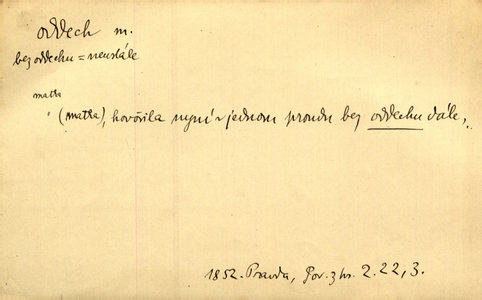 oddech m.
bez oddechu = neustále
matka
(matka), hovořila nyní v jednom proudu bez oddechu dále,
1852. Pravda, Pov. z kr. 2. 22, 3.